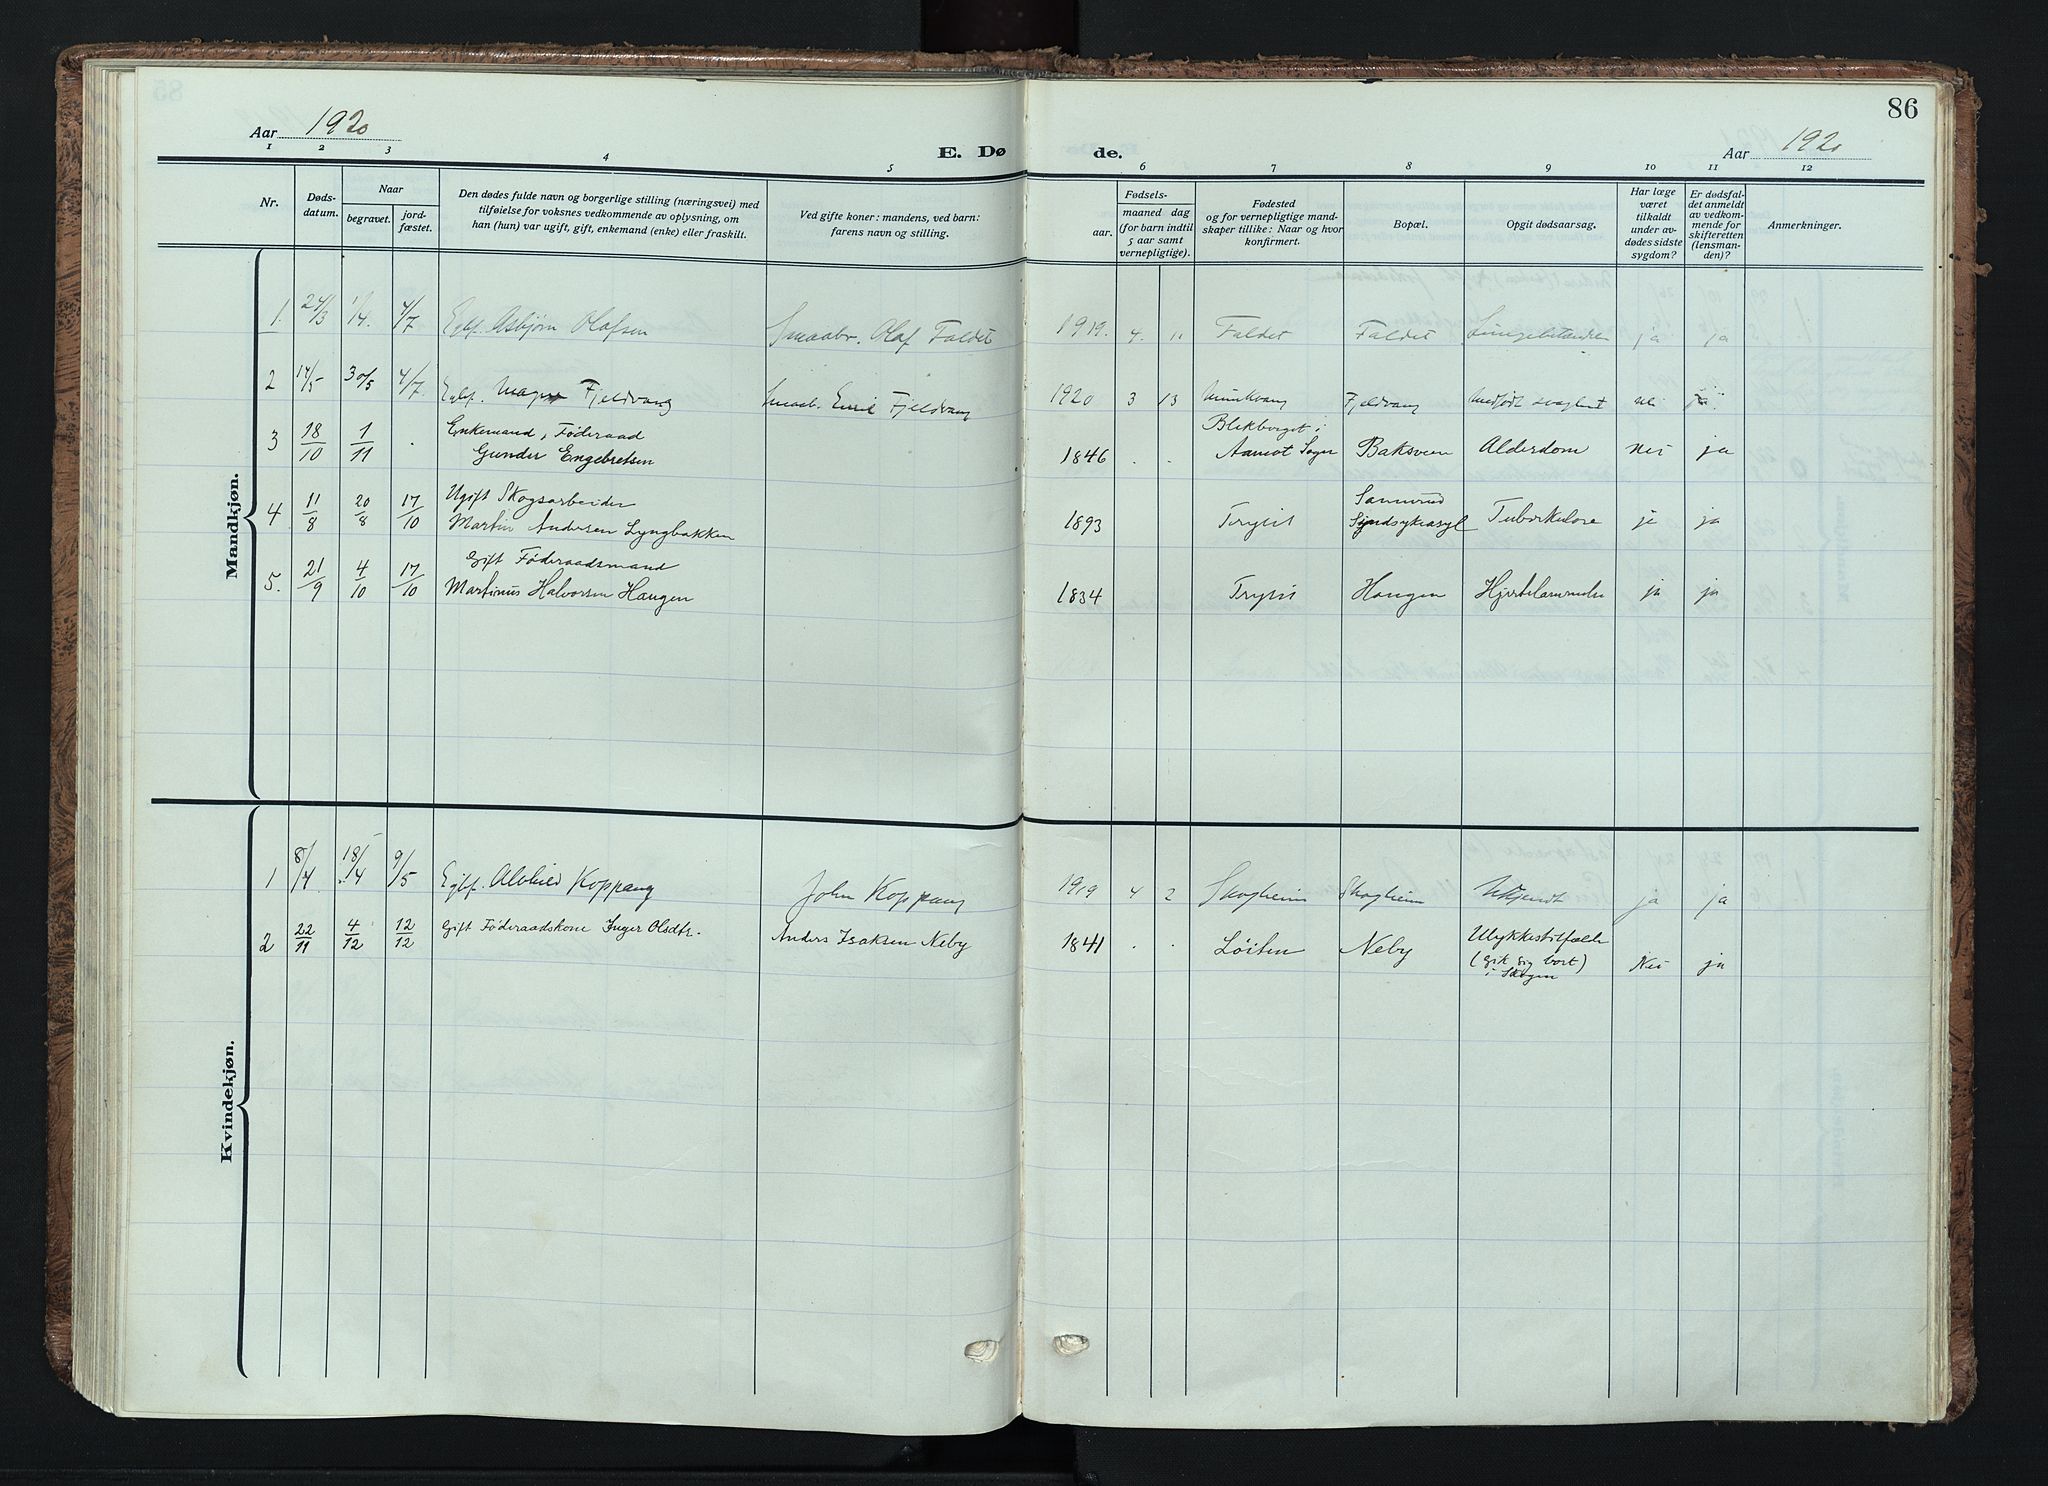 86
Aar 1920
E. Dø
de.
Aar 1920
1 2 3 4 5
6 7 8 9 10 11 12
Nr.
Døds-
datum.
Naar
begravet.
jord-
fæstet.
Den dødes fulde navn og borgerlige stilling (næringsvei) med
tilføielse for voksnes vedkommende av oplysning, om
han (hun) var ugift, gift, enkemand (enke) eller fraskilt.
Ved gifte koner: mandens, ved barn:
farens navn og stilling.
Fødsels-
aar.
maaned dag
(for barn indtil
5 aar samt
vernepligtige).
Fødested
og for vernepligtige mand-
skaper tillike: Naar og hvor
konfirmert.
Bopæl.
Opgit dødsaarsag.
Har læge
været
tilkaldt
under av-
dødes sidste
sygdom?
Er dødsfal-
det anmeldt
av vedkom-
mende for
skifteretten
(lensman-
den)?
Anmerkninger.
Mandkjøn.
1. 24/3 4/7 Egtf. Asbjørn Olafsen Smaabr. Olaf Faldet 1919. 4. 11 Faldet Faldet ja ja
2 14/5 30/5 4/7 Egtf. Fjeldvang Smaab. Emil Fjeldvang 1920 3 13 Fjeldvang Medfødt svaghet
3 18/10 1/11 . Enkemand, Føderaad
Gunder Engebretsen 1846 . . Aamot Sogn Baksveen Alderdom Nei ja
4 11/8 20/8 17/10 Ugift Skogsarbeider
Martin Andersen Lyngbakken 1893 Trysil Sindsykeasyl Tuberkulose ja ja
5. 21/9 4/10 17/10 Gift Føderaadsmand
Martinus Halvorsen Haugen 1834 Trysil Haugen Hjertelammelse ja ja
Kvindekjøn.
1 8/4 18/4 9/5 Egtf. Alvhild Koppang John Koppang 1919 4 2 Skogheim Skogheim Ukjendt ja ja
2 22/11 4/12 12/12 Gift Føderaadskone Inger Olsdtr. Anders Isaksen Neby 1841 . . Løiten Neby Ulykkestilfælde
(gik sig bort)
i Skogen Nei ja